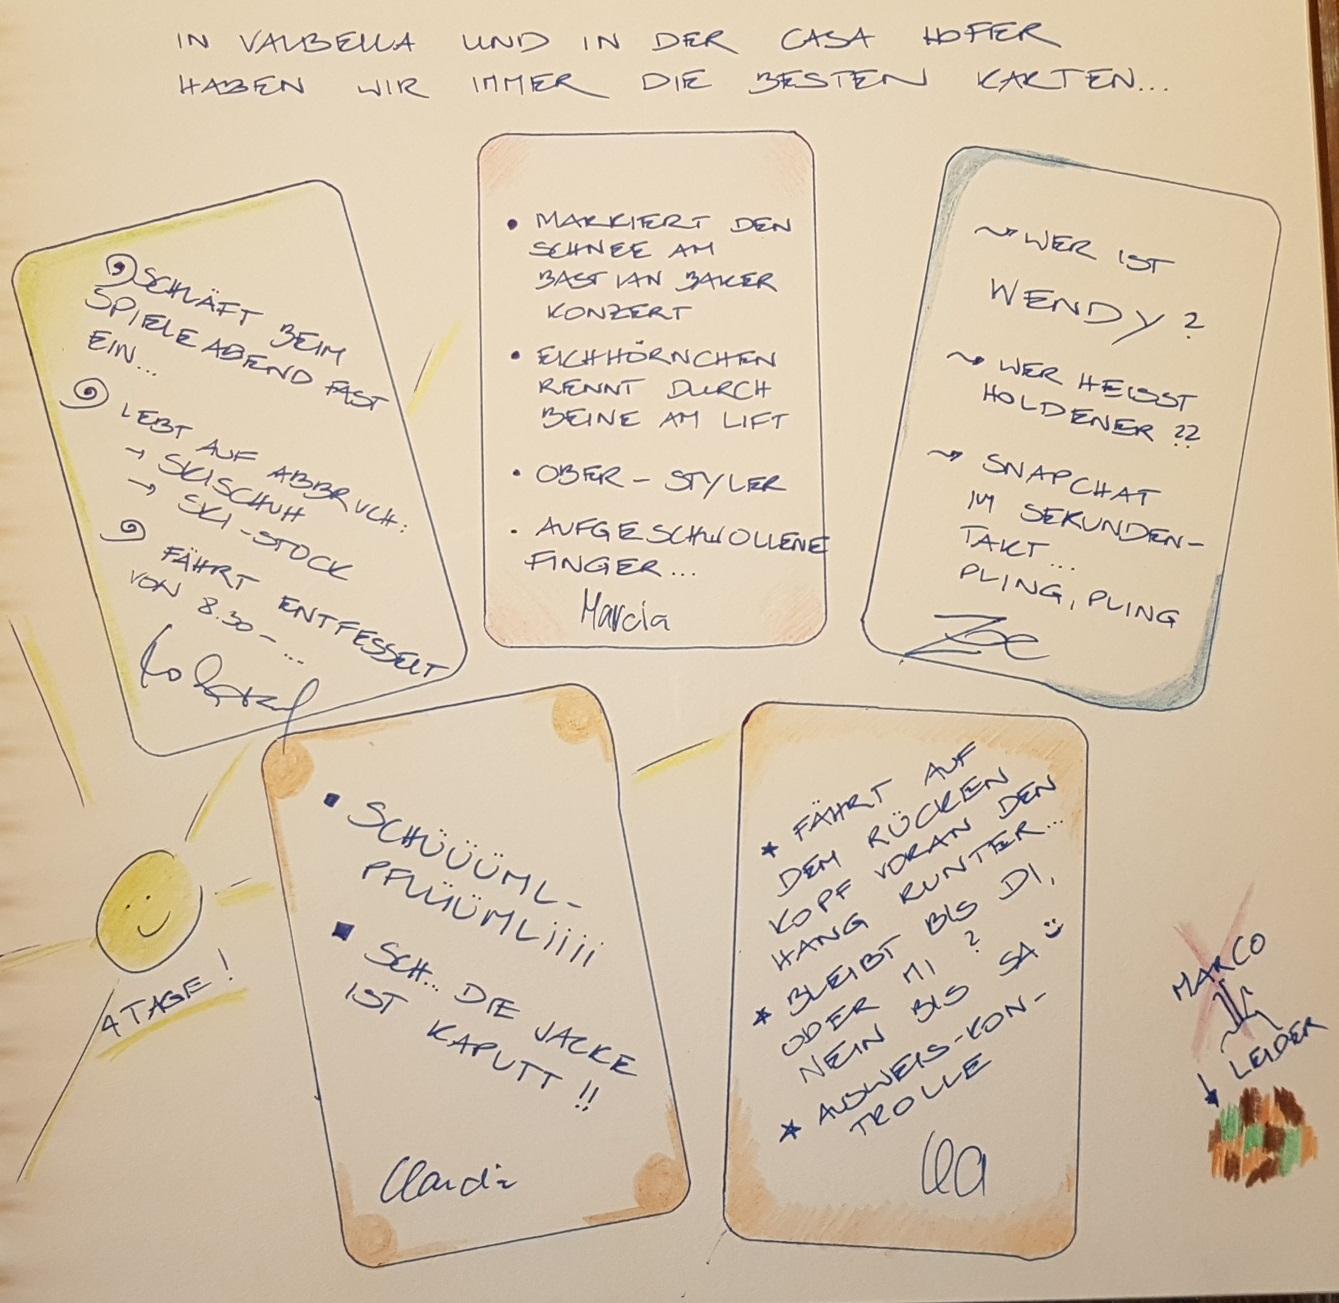 IN VALBELLA UND IN DER CASA HOFER
HABEN WIR IMMER DIE BESTEN KARTEN...
SCHLÄFT BEIM
SPIELEABEND FAST
EIN...
LEBT AUF ABBRUCH:
→ SKISCHUH
→ SKI-STOCK
FÄHRT ENTFESSELT
VON 8.30 - ...
• MARKIERT DEN
SCHNEE AM
BASTIAN BAKER
KONZERT
• EICHHÖRNCHEN
RENNT DURCH
BEINE AM LIFT
• OBER-STYLER
• AUFGESCHWOLLENE
FINGER...
Marcia
WER IST
WENDY?
WER HEISST
HOLDENER ??
SNAPCHAT
IM SEKUNDEN-
TAKT...
PLING, PLING
Zoe
▪ SCHÜÜÜML-
PFLÜÜMLiiii
▪ SCH... DIE JACKE
IST KAPUTT !!
Claudia
★ FÄHRT AUF
DEM RÜCKEN
KOPF VORAN DEN
HANG RUNTER...
★ BLEIBT BIS DI,
ODER MI ?
NEIN BIS SA
★ AUSWEIS-KON-
TROLLE
4 TAGE!
MARCO
LEIDER